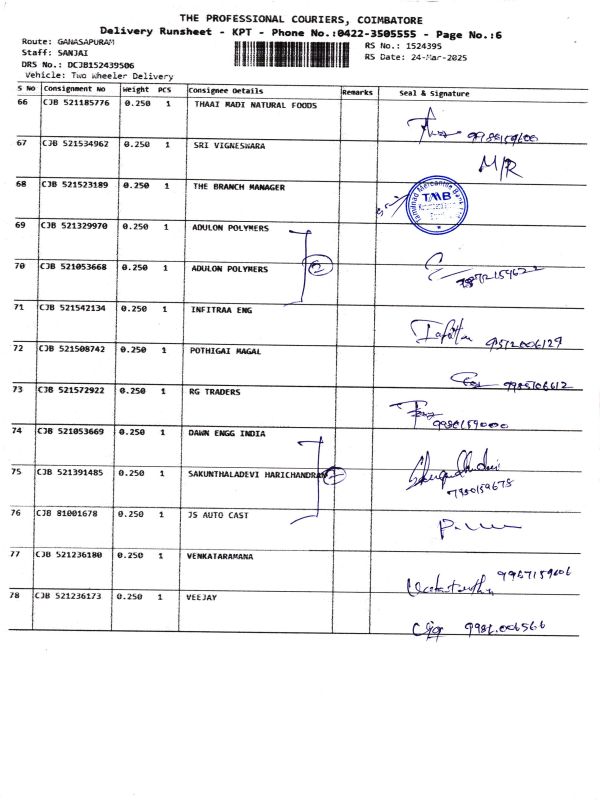 THE PROFESSIONAL COURIERS, COIMBATORE
Delivery Runsheet - KPT - Phone No.:0422-3505555 - Page No.:6
Route: GANASAPURAM
RS No.: 1524395
Staff: SANJAI
RS Date: 24-Mar-2025
DRS No.: DCJB152439506
Vehicle: Two Wheeler Delivery
S No Consignment No Weight PCS Consignee Details Remarks Seal & Signature
66 CJB 521185776 0.250 1 THAAI MADI NATURAL FOODS
67 CJB 521534962 0.250 1 SRI VIGNESWARA
M/R
68 CJB 521523189 0.250 1 THE BRANCH MANAGER
TMB
69 CJB 521329970 0.250 1 ADULON POLYMERS
70 CJB 521053668 0.250 1 ADULON POLYMERS 2
71 CJB 521542134 0.250 1 INFITRAA ENG
72 CJB 521508742 0.250 1 POTHIGAI MAGAL
73 CJB 521572922 0.250 1 RG TRADERS
74 CJB 521053669 0.250 1 DAWN ENGG INDIA
75 CJB 521391485 0.250 1 SAKUNTHALADEVI HARICHANDRAN
7980159678
76 CJB 81001678 0.250 1 JS AUTO CAST
77 CJB 521236180 0.250 1 VENKATARAMANA
78 CJB 521236173 0.250 1 VEEJAY